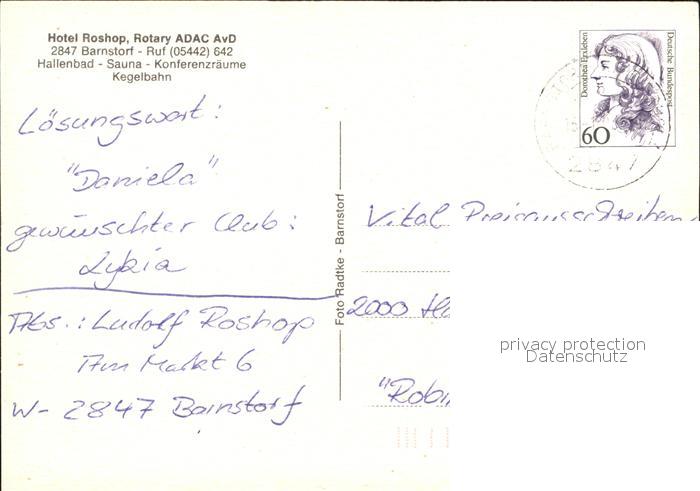 Hotel Roshop, Rotary ADAC AvD
2847 Barnstorf - Ruf (05442) 642
Hallenbad - Sauna - Konferenzräume
Kegelbahn
Lösungswort:
"Daniela"
gewünschter Club:
Lykia
Abs.: Ludolf Roshop
Am Markt 6
W- 2847 Barnstorf
Foto Radtke - Barnstorf
Dorothea Erxleben
Deutsche Bundespost
60
2847
Vital Preisausschreiben
2000
privacy protection
Datenschutz